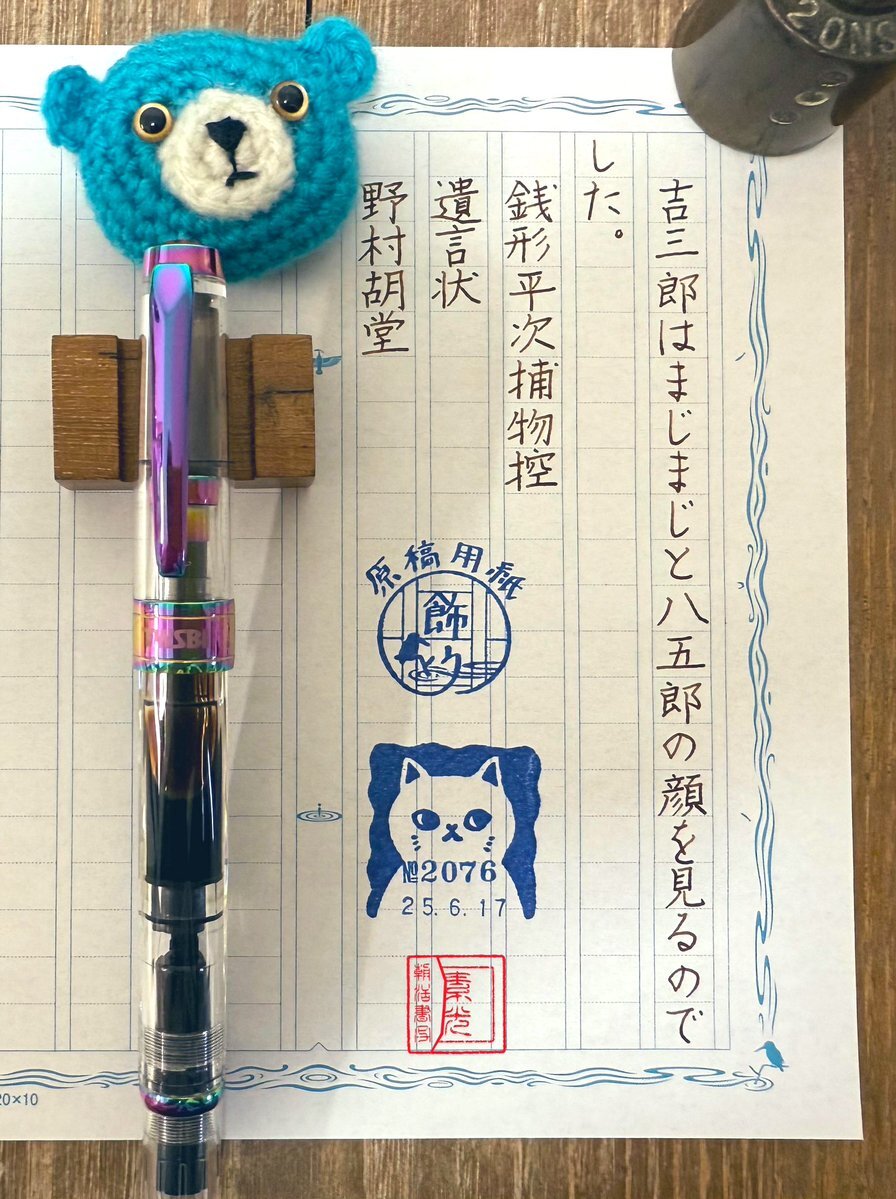 吉三郎はまじまじと八五郎の顔を見るので
した。
銭形平次捕物控
遺言状
野村胡堂
原稿用紙
飾
№2076
25.6.17
素光
朝活書写
20×10